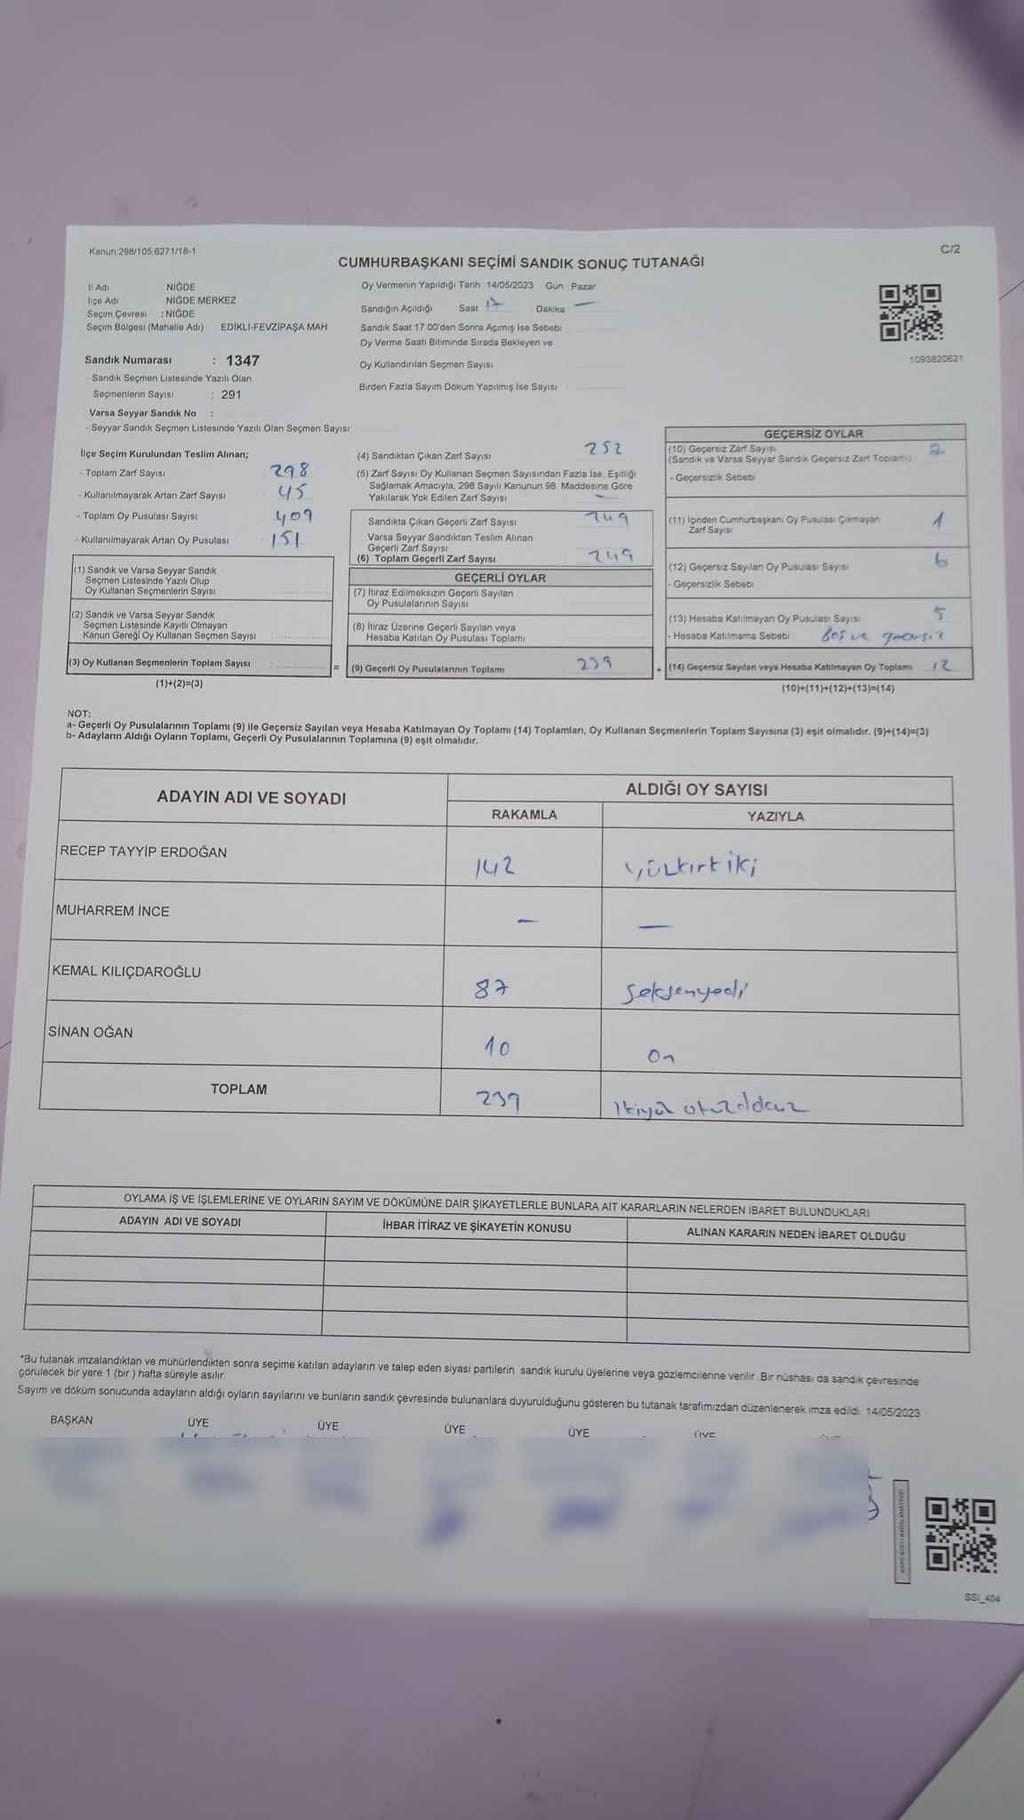 Kanun:298/105,6271/18-1
C/2
CUMHURBAŞKANI SEÇİMİ SANDIK SONUÇ TUTANAĞI
İl Adı NİĞDE
İlçe Adı NİĞDE MERKEZ
Seçim Çevresi : NİĞDE
Seçim Bölgesi (Mahalle Adı) EDİKLİ-FEVZİPAŞA MAH
Sandık Numarası : 1347
- Sandık Seçmen Listesinde Yazılı Olan
Seçmenlerin Sayısı : 291
Varsa Seyyar Sandık No :
- Seyyar Sandık Seçmen Listesinde Yazılı Olan Seçmen Sayısı
Oy Vermenin Yapıldığı Tarih 14/05/2023 Gün Pazar
Sandığın Açıldığı Saat 17 Dakika —
Sandık Saat 17.00'den Sonra Açılmış İse Sebebi
Oy Verme Saati Bitiminde Sırada Bekleyen ve
Oy Kullandırılan Seçmen Sayısı
Birden Fazla Sayım Döküm Yapılmış İse Sayısı
1093820621
İlçe Seçim Kurulundan Teslim Alınan;
- Toplam Zarf Sayısı 298
- Kullanılmayarak Artan Zarf Sayısı 45
- Toplam Oy Pusulası Sayısı 409
- Kullanılmayarak Artan Oy Pusulası 151
(1) Sandık ve Varsa Seyyar Sandık
Seçmen Listesinde Yazılı Olup
Oy Kullanan Seçmenlerin Sayısı
(2) Sandık ve Varsa Seyyar Sandık
Seçmen Listesinde Kayıtlı Olmayan
Kanun Gereği Oy Kullanan Seçmen Sayısı
(3) Oy Kullanan Seçmenlerin Toplam Sayısı
(1)+(2)=(3)
=
(4) Sandıktan Çıkan Zarf Sayısı 252
(5) Zarf Sayısı Oy Kullanan Seçmen Sayısından Fazla İse, Eşitliği
Sağlamak Amacıyla, 298 Sayılı Kanunun 98. Maddesine Göre
Yakılarak Yok Edilen Zarf Sayısı —
Sandıkta Çıkan Geçerli Zarf Sayısı 249
Varsa Seyyar Sandıktan Teslim Alınan
Geçerli Zarf Sayısı
(6) Toplam Geçerli Zarf Sayısı 249
GEÇERLİ OYLAR
(7) İtiraz Edilmeksizin Geçerli Sayılan
Oy Pusulalarının Sayısı
(8) İtiraz Üzerine Geçerli Sayılan veya
Hesaba Katılan Oy Pusulası Toplamı
(9) Geçerli Oy Pusulalarının Toplamı 239
+
GEÇERSİZ OYLAR
(10) Geçersiz Zarf Sayısı 2
(Sandık ve Varsa Seyyar Sandık Geçersiz Zarf Toplamı)
- Geçersizlik Sebebi
(11) İçinden Cumhurbaşkanı Oy Pusulası Çıkmayan 1
Zarf Sayısı
(12) Geçersiz Sayılan Oy Pusulası Sayısı 6
- Geçersizlik Sebebi
(13) Hesaba Katılmayan Oy Pusulası Sayısı 5
- Hesaba Katılmama Sebebi Boş ve geçersiz
(14) Geçersiz Sayılan veya Hesaba Katılmayan Oy Toplamı 12
(10)+(11)+(12)+(13)=(14)
NOT:
a- Geçerli Oy Pusulalarının Toplamı (9) ile Geçersiz Sayılan veya Hesaba Katılmayan Oy Toplamı (14) Toplamları, Oy Kullanan Seçmenlerin Toplam Sayısına (3) eşit olmalıdır. (9)+(14)=(3)
b- Adayların Aldığı Oyların Toplamı, Geçerli Oy Pusulalarının Toplamına (9) eşit olmalıdır.
ADAYIN ADI VE SOYADI
ALDIĞI OY SAYISI
RAKAMLA YAZIYLA
RECEP TAYYİP ERDOĞAN 142 yüzkırkiki
MUHARREM İNCE — —
KEMAL KILIÇDAROĞLU 87 Seksenyedi
SİNAN OĞAN 10 On
TOPLAM 239 İkiyüz otuzdokuz
OYLAMA İŞ VE İŞLEMLERİNE VE OYLARIN SAYIM VE DÖKÜMÜNE DAİR ŞİKAYETLERLE BUNLARA AİT KARARLARIN NELERDEN İBARET BULUNDUKLARI
ADAYIN ADI VE SOYADI İHBAR İTİRAZ VE ŞİKAYETİN KONUSU ALINAN KARARIN NEDEN İBARET OLDUĞU
*Bu tutanak imzalandıktan ve mühürlendikten sonra seçime katılan adayların ve talep eden siyasi partilerin sandık kurulu üyelerine veya gözlemcilerine verilir. Bir nüshası da sandık çevresinde
görülecek bir yere 1 (bir) hafta süreyle asılır.
Sayım ve döküm sonucunda adayların aldığı oyların sayılarını ve bunların sandık çevresinde bulunanlara duyurulduğunu gösteren bu tutanak tarafımızdan düzenlenerek imza edildi. 14/05/2023
BAŞKAN ÜYE ÜYE ÜYE ÜYE ÜYE
SSI_404